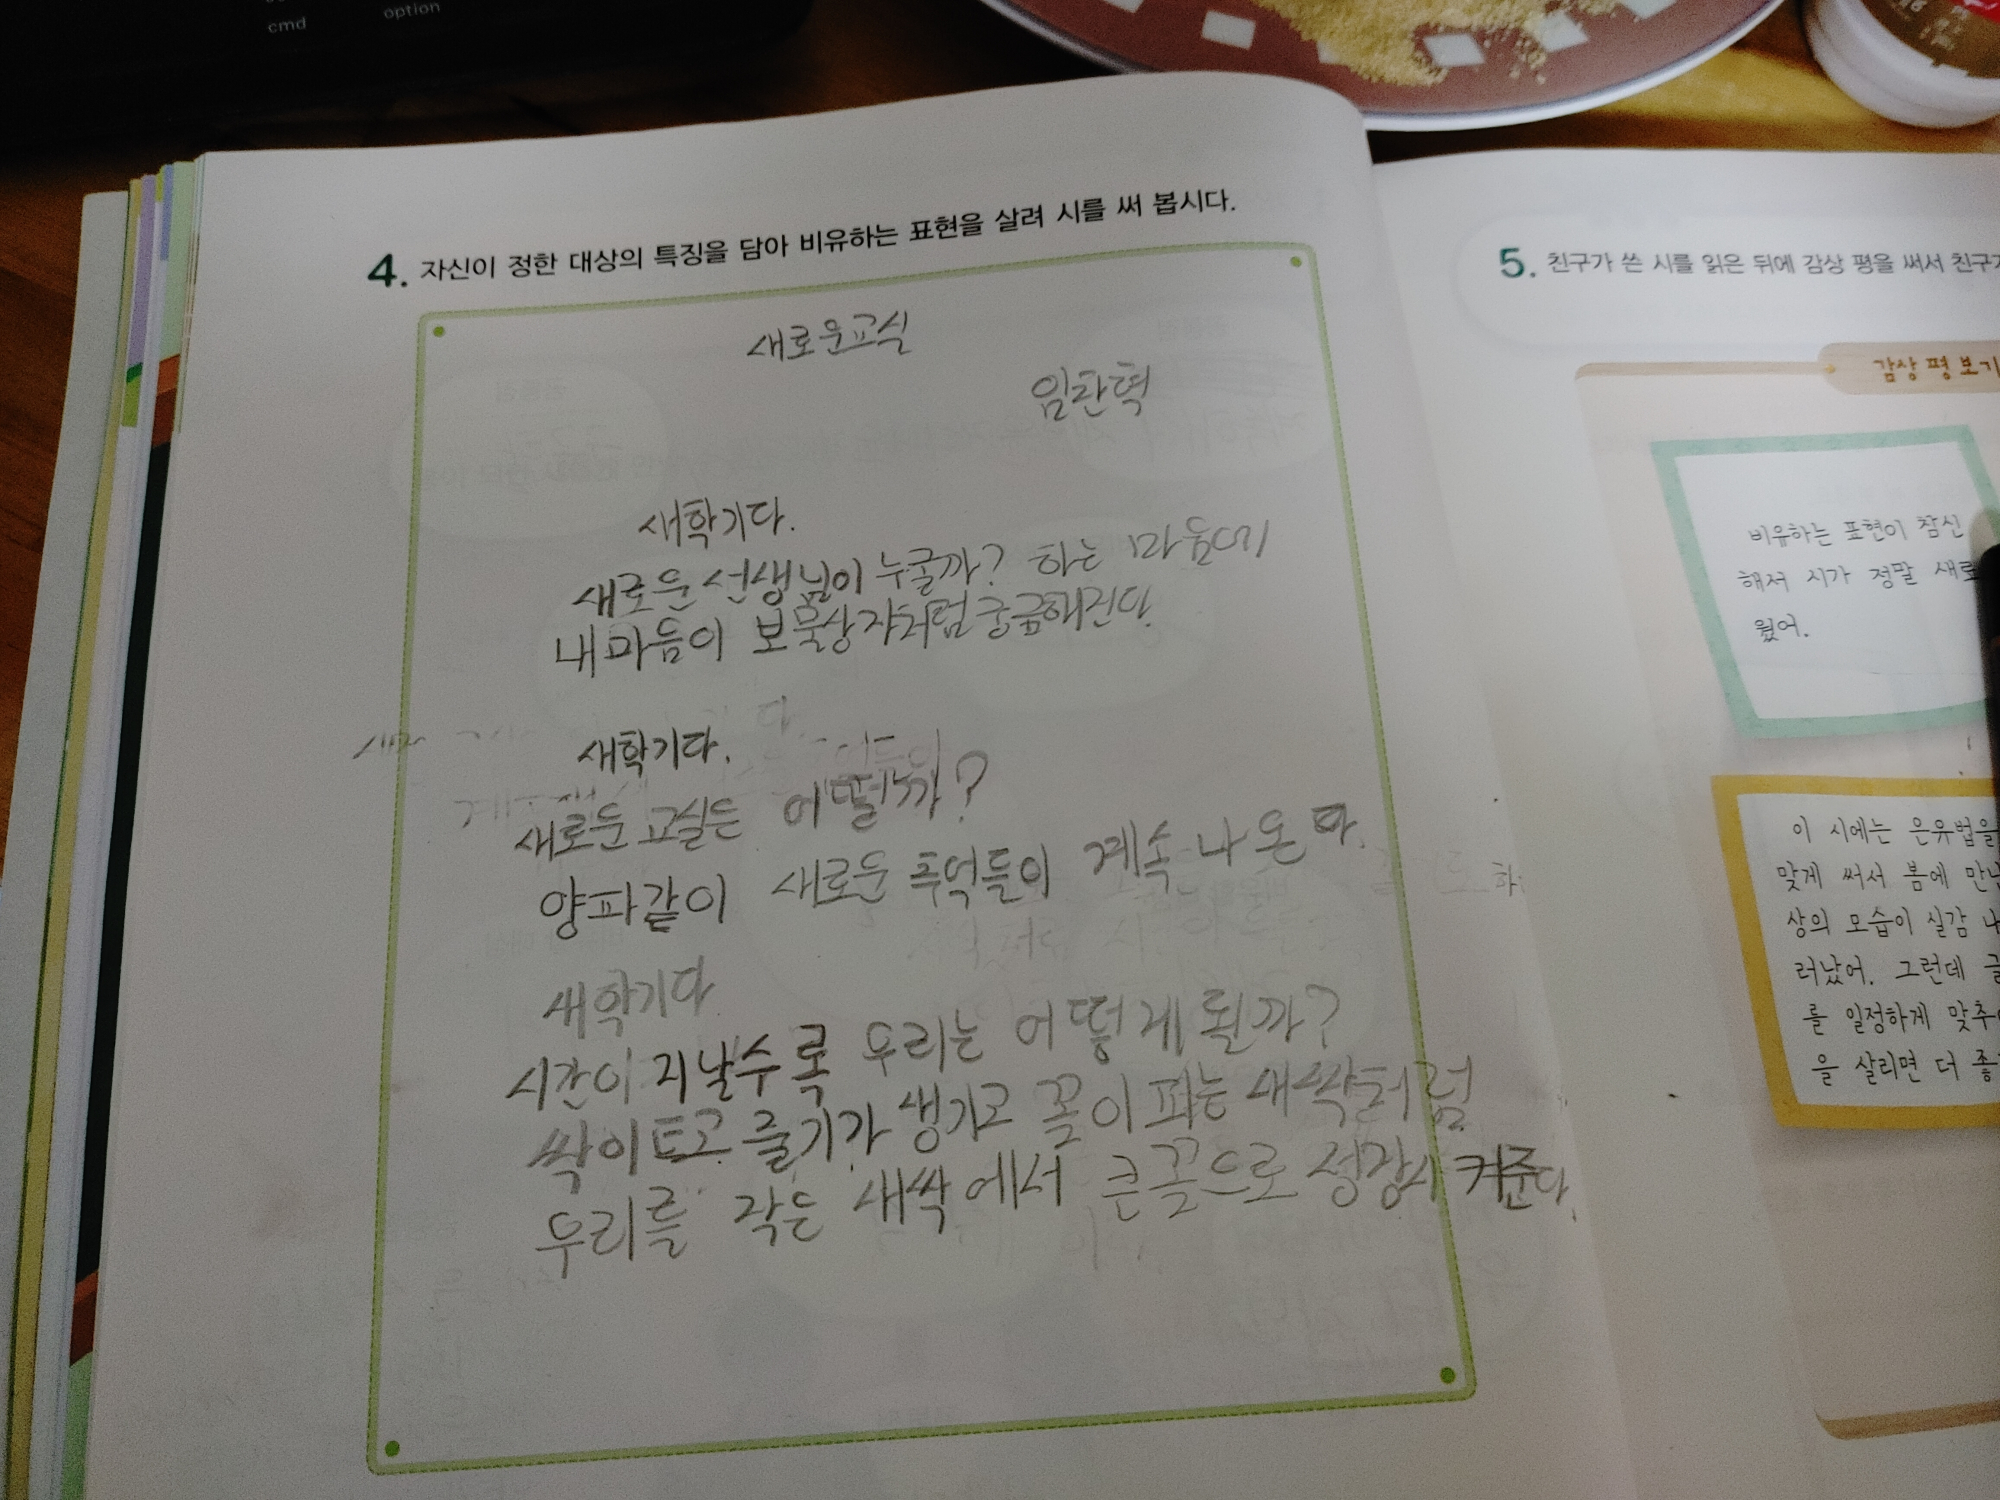 cmd
option
4. 자신이 정한 대상의 특징을 담아 비유하는 표현을 살려 시를 써 봅시다.
새로운교실
임찬혁
새학기다.
새로운 선생님이 누굴까? 하는 마음에
내마음이 보물상자처럼 궁금해진다.
새학기다.
새로운 교실은 어떨까?
양파같이 새로운 추억들이 계속 나온다.
새학기다
시간이 지날수록 우리는 어떻게 될까?
싹이트고 줄기가 생기고 꽃이 피는 새싹처럼
우리를 작은 새싹에서 큰꽃으로 성장시켜준다.
5. 친구가 쓴 시를 읽은 뒤에 감상 평을 써서 친구
감상 평 보기
비유하는 표현이 참신
해서 시가 정말 새로
웠어.
이 시에는 은유법을
맞게 써서 봄에 만
상의 모습이 실감
러났어. 그런데 글
를 일정하게 맞추
을 살리면 더 좋